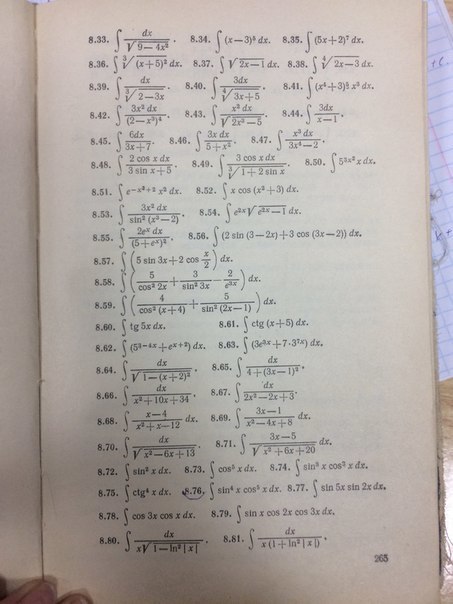 8.33. ∫ dx / √(9−4x²). 8.34. ∫ (x−3)⁵ dx. 8.35. ∫ (5x+2)⁷ dx.
8.36. ∫ ∛((x+5)²) dx. 8.37. ∫ √(2x−1) dx. 8.38. ∫ ∜(2x−3) dx.
8.39. ∫ dx / ∛(2−3x). 8.40. ∫ 3dx / ∜(3x+5). 8.41. ∫ (x⁴+3)⁵ x³ dx.
8.42. ∫ 3x² dx / (2−x³)⁴. 8.43. ∫ x² dx / √(2x³−5). 8.44. ∫ 3dx / (x−1).
8.45. ∫ 6dx / (3x+7). 8.46. ∫ 3x dx / (5+x²). 8.47. ∫ x³ dx / (3x⁴−2).
8.48. ∫ 2 cos x dx / (3 sin x+5). 8.49. ∫ 3 cos x dx / ∛(1+2 sin x). 8.50. ∫ 5^(3x²) x dx.
8.51. ∫ e^(−x³+2) x² dx. 8.52. ∫ x cos (x²+3) dx.
8.53. ∫ 3x² dx / sin² (x³−2). 8.54. ∫ e^(2x) √(e^(2x)−1) dx.
8.55. ∫ 2eˣ dx / (5+eˣ)². 8.56. ∫ (2 sin (3−2x)+3 cos (3x−2)) dx.
8.57. ∫ (5 sin 3x+2 cos x/2) dx.
8.58. ∫ (5 / cos² 2x + 3 / sin² 3x − 2 / e^(3x)) dx.
8.59. ∫ (4 / cos² (x+4) + 5 / sin² (2x−1)) dx.
8.60. ∫ tg 5x dx. 8.61. ∫ ctg (x+5) dx.
8.62. ∫ (5^(3−4x)+e^(x+2)) dx. 8.63. ∫ (3e^(3x)+7·3^(7x)) dx.
8.64. ∫ dx / √(1−(x+2)²). 8.65. ∫ dx / (4+(3x−1)²).
8.66. ∫ dx / (x²+10x+34). 8.67. ∫ dx / (2x²−2x+3).
8.68. ∫ (x−4) / (x²+x−12) dx. 8.69. ∫ (3x−1) / (x²−4x+8) dx.
8.70. ∫ dx / √(x²−6x+13). 8.71. ∫ (3x−5) / √(x²+6x+20) dx.
8.72. ∫ sin² x dx. 8.73. ∫ cos⁵ x dx. 8.74. ∫ sin³ x cos² x dx.
8.75. ∫ ctg⁴ x dx. 8.76. ∫ sin⁴ x cos⁵ x dx. 8.77. ∫ sin 5x sin 2x dx.
8.78. ∫ cos 3x cos x dx. 8.79. ∫ sin x cos 2x cos 3x dx.
8.80. ∫ dx / (x√(1−ln² |x|)). 8.81. ∫ dx / (x (1+ln² |x|)).
265